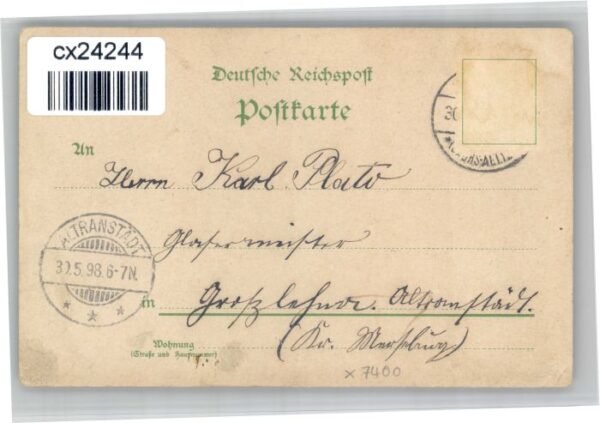 cx24244
Deutsche Reichspost
Postkarte
30
An
Herrn Karl Plato
ALTRANSTÄDT
30.5.98.6-7N.
Glasermeister
in Großlehna. Altranstädt.
(Kr. Merseburg)
Wohnung
(Straße und Hausnummer)
x 7400